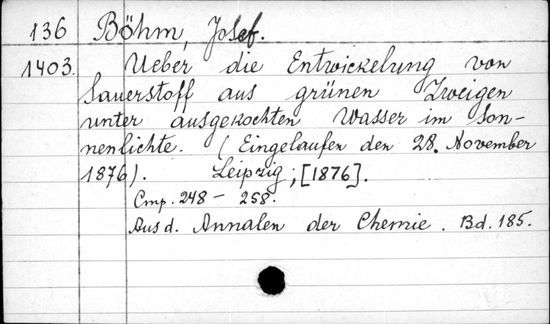 136 Böhm, Josef.
1403. Ueber die Entwickelung von
Sauerstoff aus grünen Zweigen
unter ausgekochten Wasser im Son-
nenlichte. (Eingelaufen den 28. November
1876). Leipzig; [1876].
Стр. 248 - 258.
Aus d. Annalen der Chemie. Bd. 185.